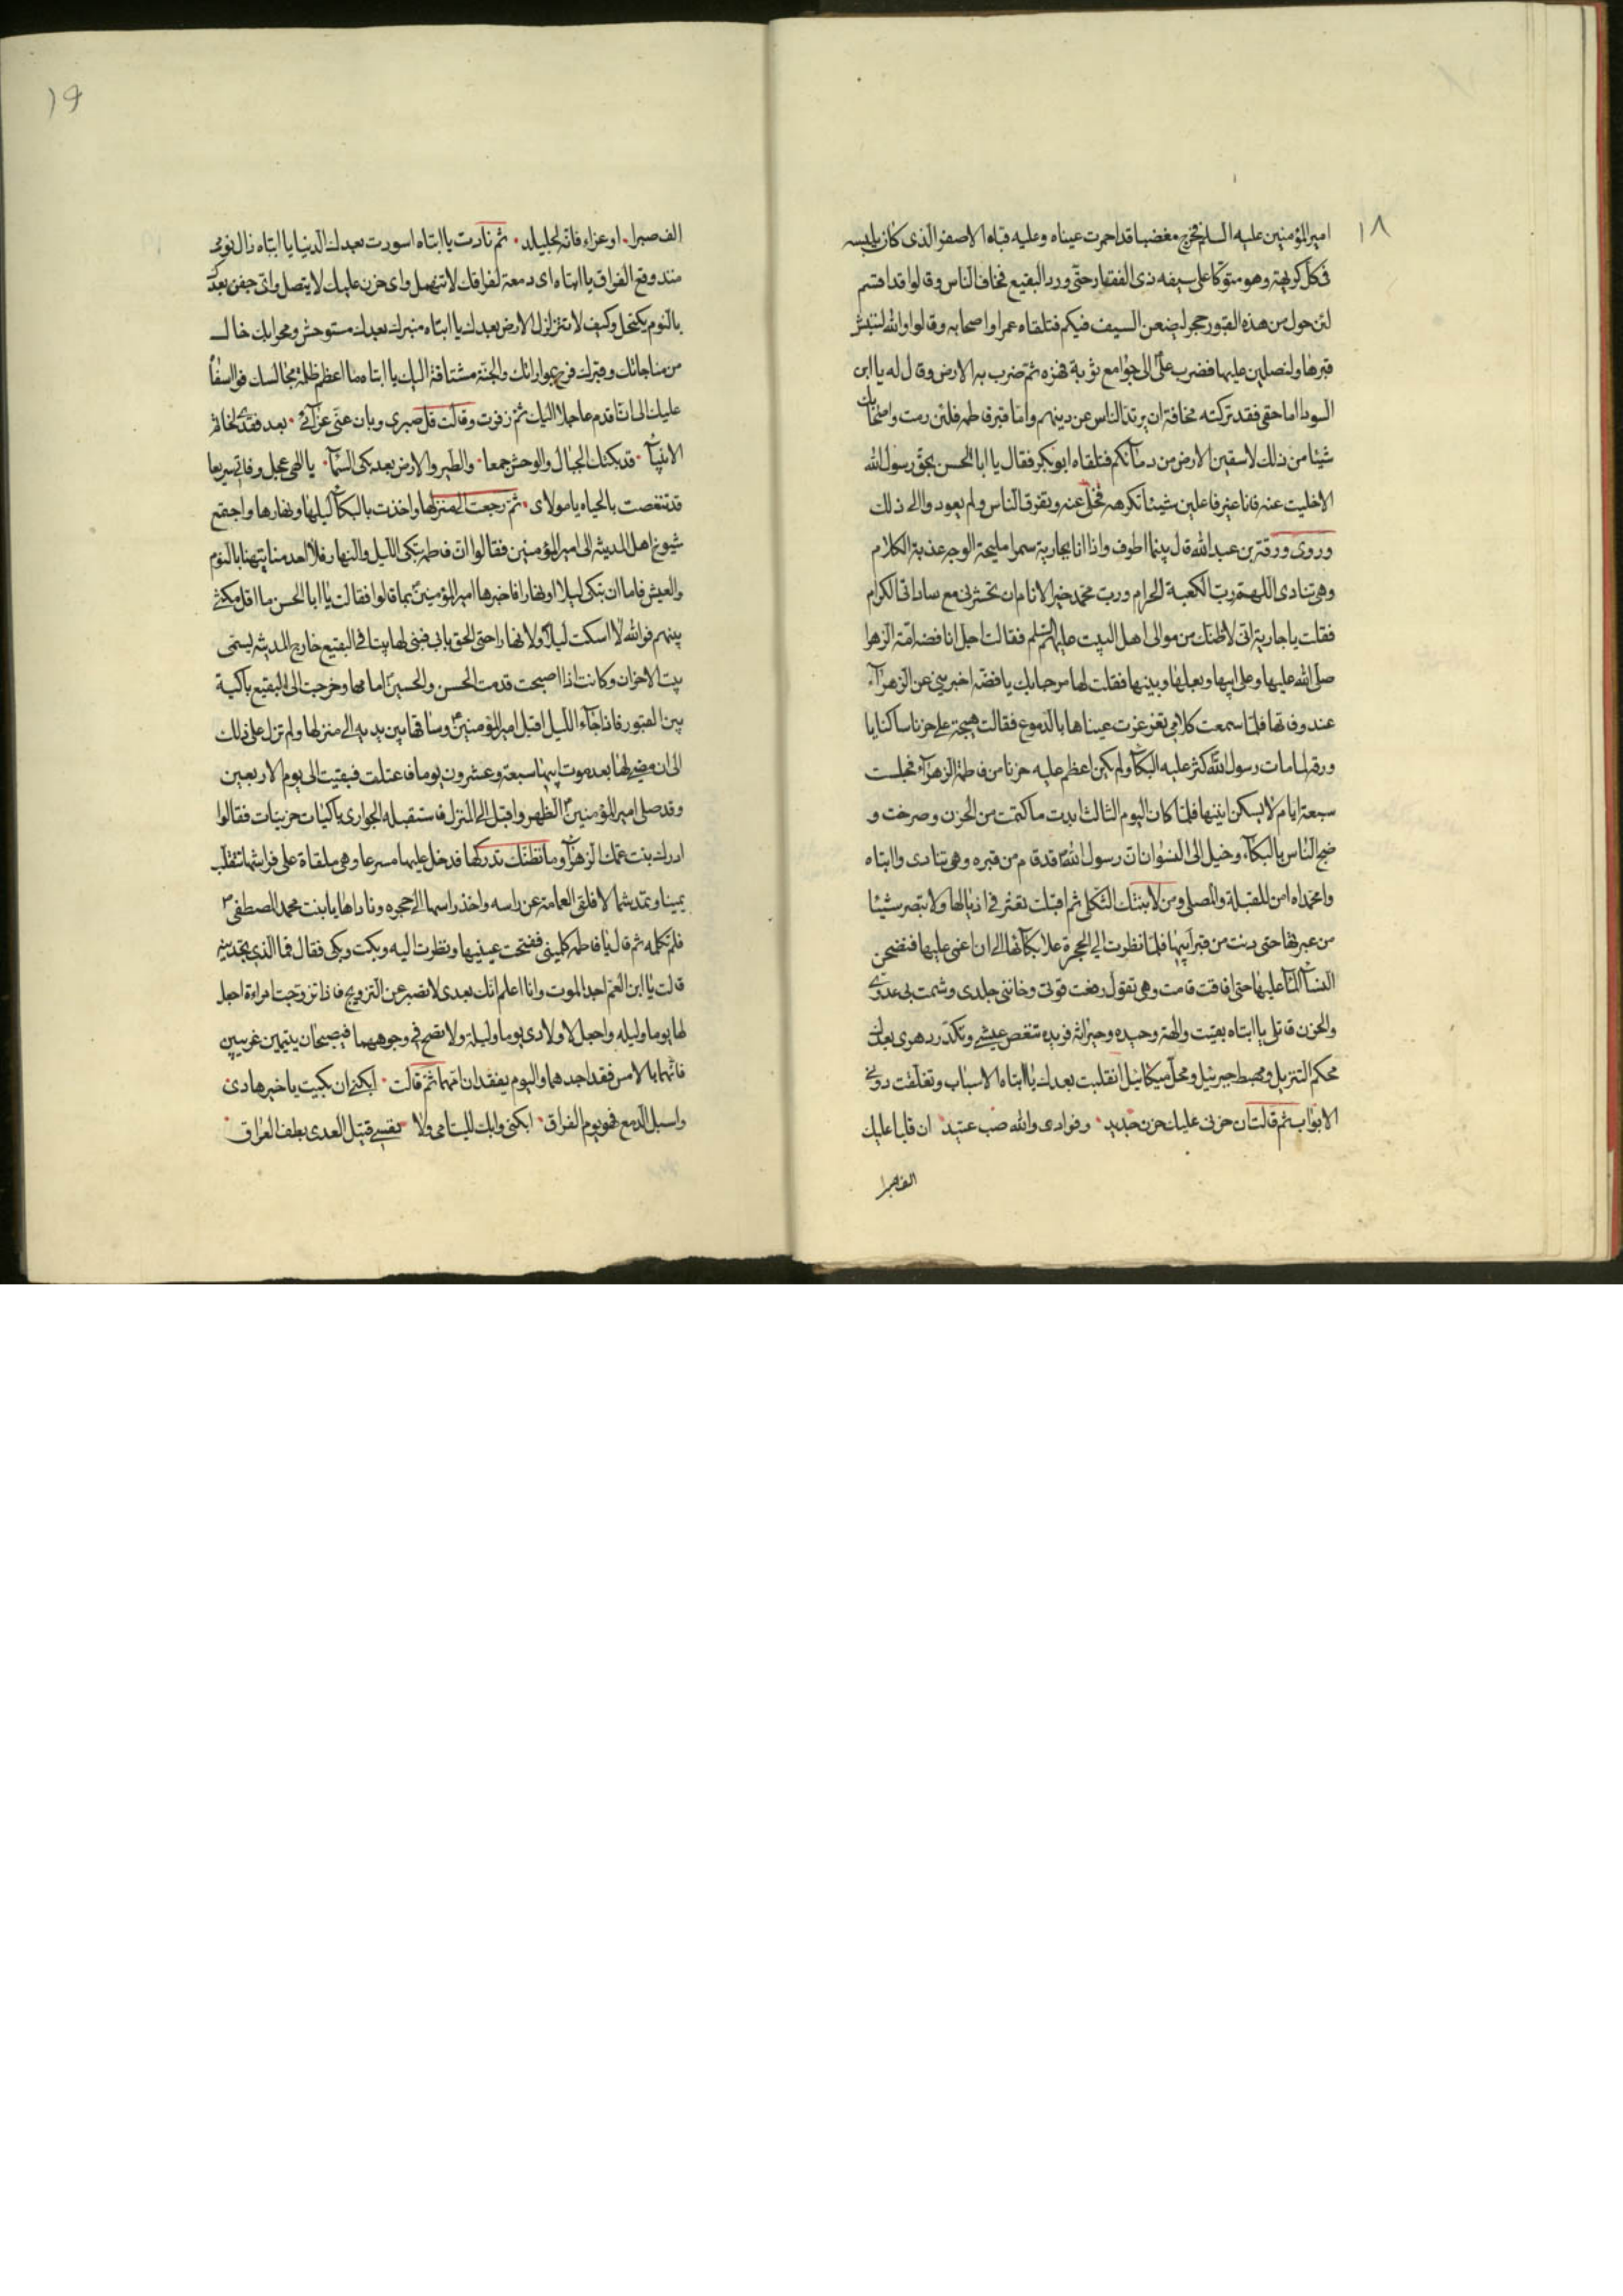 ١٨
امير المؤمنين عليه السلم فخرج مغضبا قد احمرت عيناه وعليه قباه الاصفر الذى كان يلبسه
فى كل كريهة وهو متوكا على سيفه ذى الفقار حتى ورد البقيع فخاف الناس وقالوا قد اقسم
لئن حول من هذه القبور حجر ليضعن السيف فيكم فتلقاه عمر واصحابه وقالوا والله لننبش
قبرها ولنصلين عليها فضرب على الى جوامع ثوبة فهزه ثم ضرب به الارض وقال له يا ابن
السودا اما حقى فقد تركته مخافة ان يرتد الناس عن دينهم واما قبر فاطمه فلئن رمت واصحابك
شيئا من ذلك لاسقين الارض من دمآئكم فتلقاه ابو بكر فقال يا ابا الحسن بحق رسول الله
الا خليت عنه فانا غير فاعلين شيئا تكرهه فخلى عنه وتفرق الناس ولم يعود والى ذلك
وروى ورقة بن عبد الله قال بينما اطوف واذا انا بجارية سمرا مليحة الوجه عذبة الكلام
وهى تنادى اللهم رب الكعبة الحرام ورب محمد خير الانام ان تحشرنى مع ساداتى الكرام
فقلت يا جارية انى لاظنك من موالى اهل البيت عليهم السلم فقالت اجل انا فضه امة الزهرا
صلى الله عليها وعلى ابيها وبعلها وبنيها فقلت لها مرحبا بك يا فضة اخبرينى عن الزهرآء
عند وفاتها فلما سمعت كلامى تغرغرت عيناها بالدموع فقالت هيجت على حزنا ساكنا يا
ورقه لما مات رسول الله كثر عليه البكآء ولم يكن اعظم عليه حزنا من فاطمة الزهرآء فجلست
سبعة ايام لا يسكن انينها فلما كان اليوم الثالث ابدت ما كتمت من الحزن وصرخت و
ضج الناس بالبكآء وخيل الى النسوان ان رسول الله قد قام من قبره وهى تنادى وا ابتاه
وا محمداه امن للقبلة والمصلى ومن لابنتك الثكلى ثم اقبلت تعثر فى اذيالها ولا تبصر شيئا
من عبرتها حتى دنت من قبر ابيها فلما نظرت الى الحجرة علا بكآئها الى ان اغمى عليها فنضحن
النسآء المآء عليها حتى افاقت قامت وهى تقول رفعت قوتى وخاننى جلدى وشمت بى عدوى
والحزن قاتلى يا ابتاه بقيت والهة وحيده وحيرانه فريده تنغص عيشى وتكدر دهرى بعدك
محكم التنزيل ومهبط جبرئيل ومحل ميكائيل انقلبت بعدك يا ابتاه الاسباب وتغلقت دونى
الابواب ثم قالت ان حزنى عليك حزن جديد وفوادى والله صب عتيد ان قلبا عليك
الف صبرا
١٩
الف صبرا او عزاء فانه لجليلد ثم نادت يا ابتاه اسودت بعدك الدنيا يا ابتاه زال نومى
منذ وقع الفراق يا ابتاه اى دمعة لفراقك لا تنهمل واى حزن عليك لا يتصل واى جفن بعدك
بالنوم يكتحل وكيف لا تتزلزل الارض بعدك يا ابتاه منبرك بعدك مستوحش ومحرابك خال
من مناجاتك وقبرك فرح بموارائك والجنة مشتاقة اليك يا ابتاه ما اعظم ظلمة مجالسك فوا اسفا
عليك الى ان اقدم عاجلا اليك ثم زفرت وقالت قل صبرى وبان عنى عزائى بعد فقدى لخاتم
الانبيآء قد بكتك الجبال والوحش جمعا والطير والارض بعد بكى السمآء يا الهى عجل وفاتى سريعا
قد تنغصت بالحياه يا مولاى ثم رجعت الى منزلها واخذت بالبكآء ليلها ونهارها واجتمع
شيوخ اهل المدينه الى امير المؤمنين فقالوا ان فاطمه تبكى الليل والنهار فلا احد منا يتهنا بالنوم
والعيش فاما ان تبكى ليلا او نهارا فاخبرها امير المؤمنين بما قالوا فقالت يا ابا الحسن ما اقل مكثى
بينهم فوالله لا اسكت ليلا ولا نهارا حتى الحق بابى فبنى لها بيتا فى البقيع خارج المدينه ليسمى
بيت الاحزان وكانت اذا اصبحت قدمت الحسن والحسين امامها وخرجت الى البقيع باكية
بين القبور فاذا جآء الليل اقبل امير المؤمنين وساقها بين يديه الى منزلها ولم تزل على ذلك
الى ان مضى لها بعد موت ابيها سبعة وعشرون يوما فاعتلت فبقيت الى يوم الاربعين
وقد صلى امير المؤمنين الظهر واقبل الى المنزل فاستقبله الجوارى باكيات حزينات فقالوا
ادرك بنت عمك الزهرآء وما نظنك تدركها فدخل عليها مسرعا وهى ملقاة على فراشها تتقلب
يمينا وتمد شمالا فلقى العمامة عن راسه واخذ راسها الى حجره وناداها يا بنت محمد المصطفى
فلم تكلمه ثم قال يا فاطمه كلمينى ففتحت عينيها ونظرت اليه وبكت وبكى فقال فما الذى تجدينه
قالت يا ابن العم اجد الموت وانا اعلم انك بعدى لا تصبر عن التزويج فاذا تزوجت امراءة اجعل
لها يوما وليله واجعل لاولادى يوما وليلة ولا تصح فى وجوههما فيصبحان يتيمين غريبين
فانهما بالامس فقدا جدهما واليوم يفقدان امهما ثم قالت ابكنى ان بكيت يا خير هادى
واسبل الدمع فهو يوم الفراق ابكنى وابك لليتامى ولا تنسى قتيل العدى بطف العراق